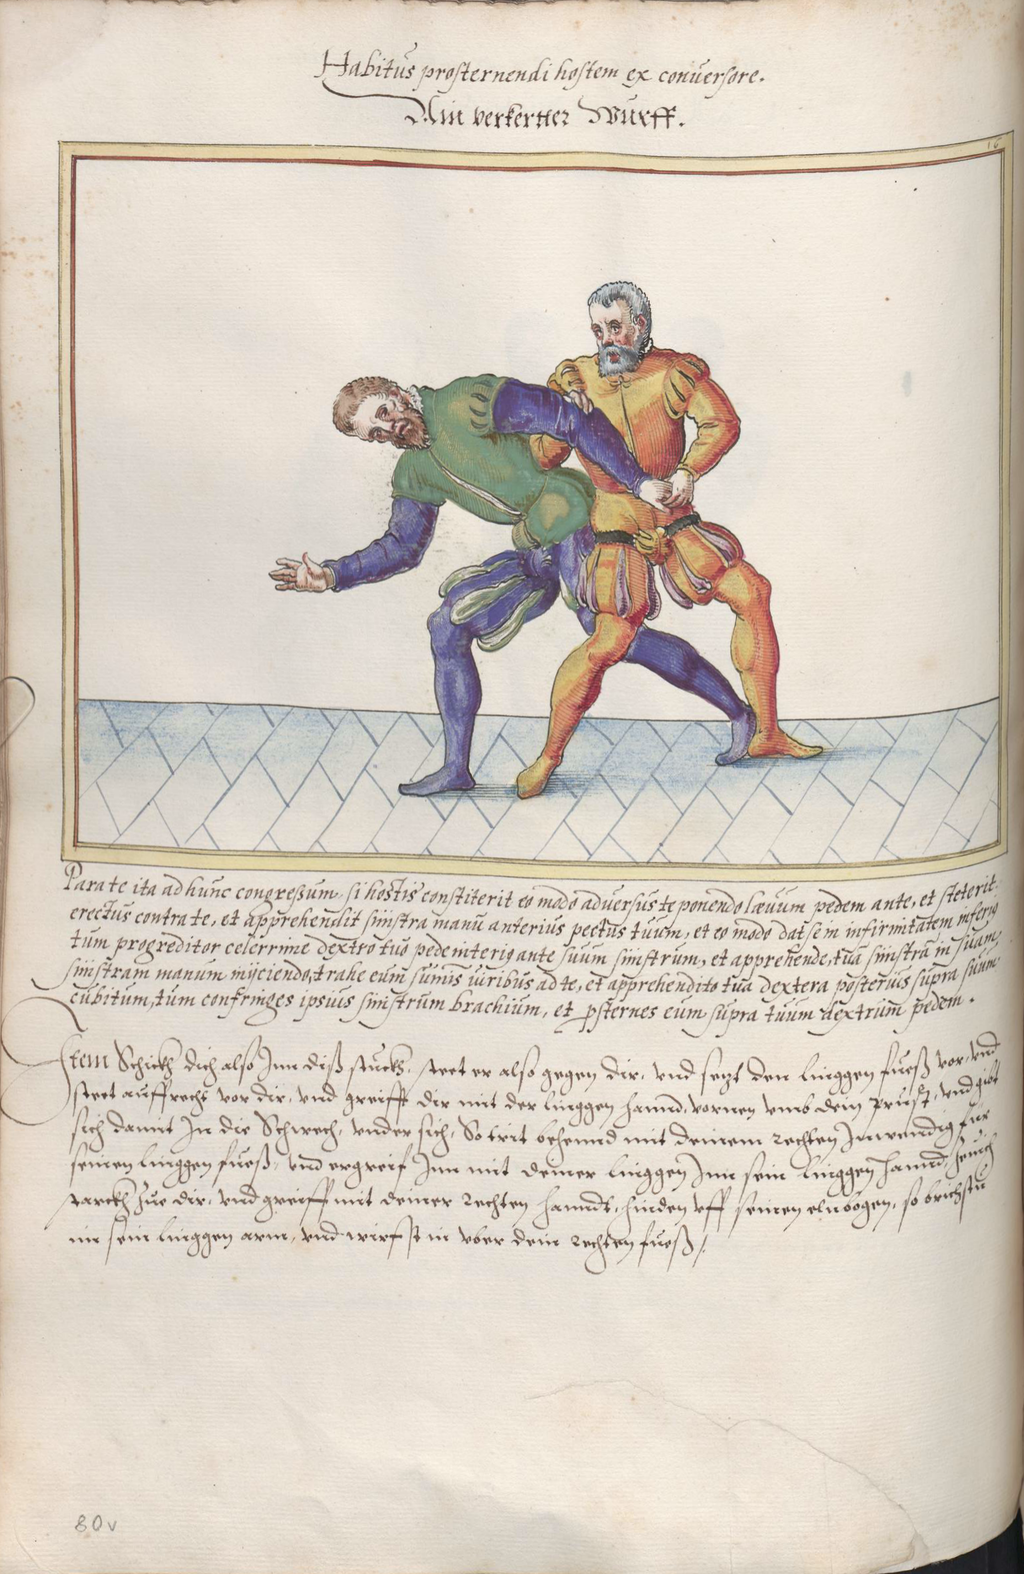 Habitus prosternendi hostem ex conuersore.
Ain verkertter Wurff.
16
Para te ita ad hunc congressum. si hostis constiterit eo modo aduersus te ponendo læuum pedem ante, et steterit
erectus contra te, et apprehendit sinistra manu anterius pectus tuum, et eo modo dat sem in infirmitatem inferiq
tum progreditor celerrime dextro tuo pede interiq ante suum sinistrum, et apprehende, tua sinistra in suam
sinistram manum inÿciendo, trahe eum sumis uiribus ad te, et apprehendito tua dextera posteriüs supra suum
cubitum, tum confringes ipsius sinistrum brachium, et psternes eum supra tuum dextrum pedem.
Item Schickh dich also Jnn diß stuckh. steet er also gegen dir, vnd setzt den linggen fueß vor, vnd
steet auffrecht vor dir, vnd greifft dir mit der linggen hannd, vornen vmb dein prust, vnd gibt
sich damit Jn die Schwech, vnder sich, So trit behennd mit deinem rechten Jnwendig für
seinen linggen fueß, vnd ergreif Jnn mit deiner linggen Jnn sein linggen hannd, zeuch
starckh zue dir, vnd greiff mit deiner rechten hanndt, hinden vff seinen elnbogen, so brichstu
im sein linggen arm, vnd wirfst in vber dein rechten fueß /.
80v